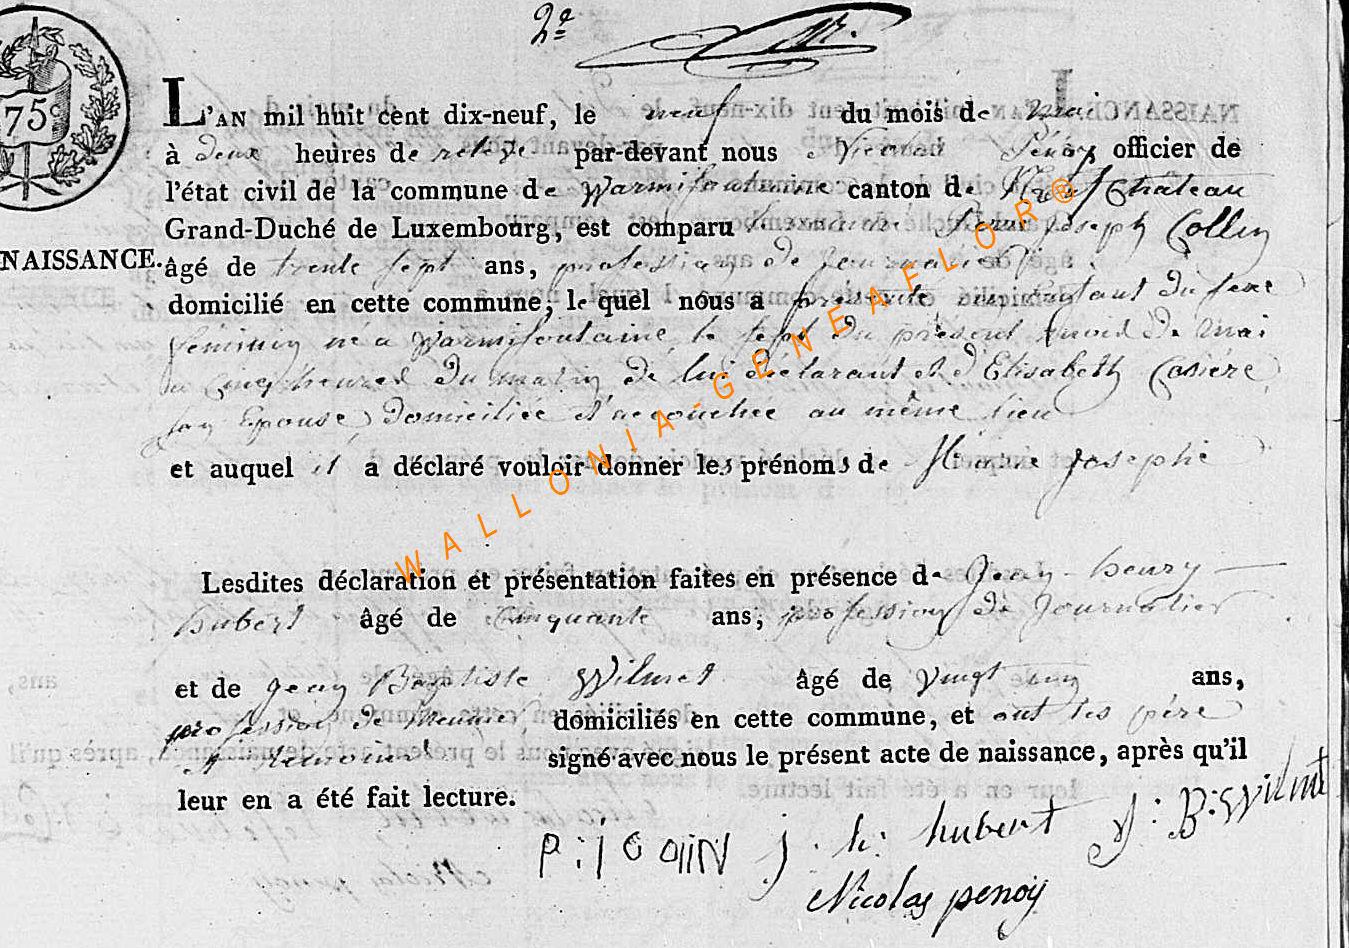 2e
75c
L'AN mil huit cent dix-neuf, le neuf du mois de mai
à deux heures de relevé par-devant nous Nicolas Pénoy officier de
l'état civil de la commune de Warmifontaine canton de Neufchateau
Grand-Duché de Luxembourg, est comparu Pierre Joseph Collin
NAISSANCE.
âgé de trente sept ans, profession de journalier
domicilié en cette commune, le quel nous a présenté un enfant du sexe
féminin né a Warmifontaine le sept du présent mois de mai
a cinq heures du matin de lui déclarant et d'Elisabeth Casiére
son Epouse domiciliée et accouchée au même lieu
et auquel il a déclaré vouloir donner les prénoms de Josephe
Lesdites déclaration et présentation faites en présence de Jean-henry
hubert âgé de Cinquante ans, profession de Journalier
et de Jean Baptiste Wilmet âgé de vingt cinq ans,
profession de domiciliés en cette commune, et ont les père
et témoins signé avec nous le présent acte de naissance, après qu'il
leur en a été fait lecture.
J: B: Wilmet
j. h: hubert
Nicolas penoy
WALLONIA-GENEAFLOR®